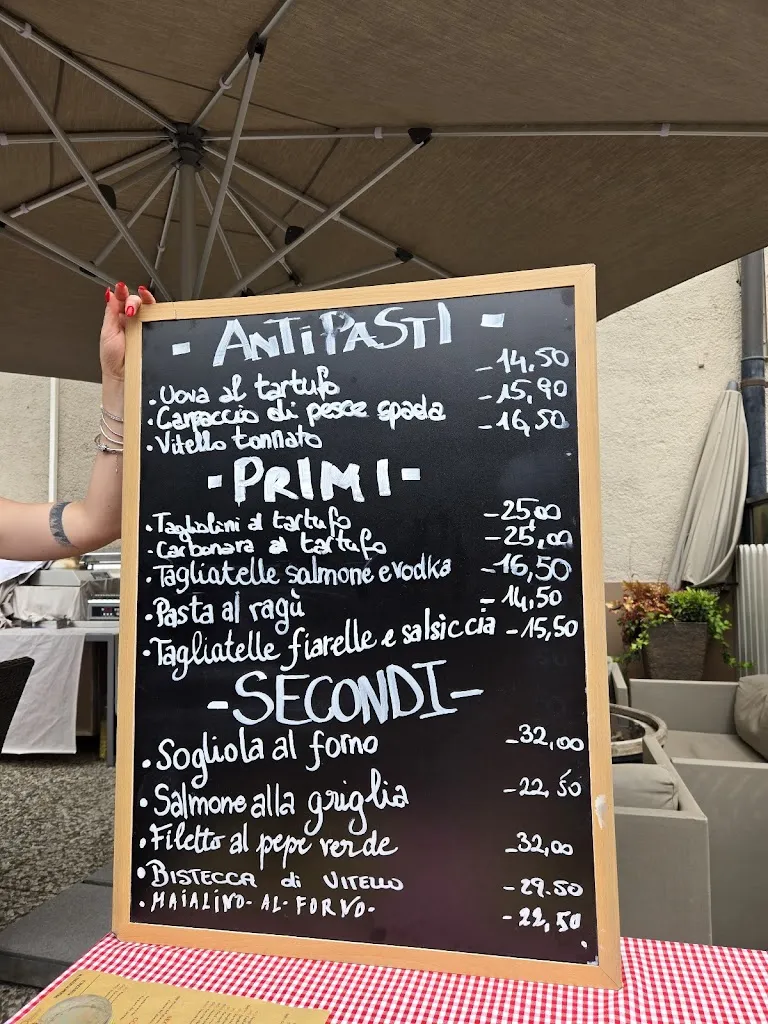 - ANTIPASTI -
• Uova al tartufo - 14,50
• Carpaccio di pesce spada - 15,90
• Vitello tonnato - 16,50
- PRIMI -
• Tagliolini al tartufo - 25,00
- Carbonara al tartufo - 25,00
• Tagliatelle salmone e vodka - 16,50
• Pasta al ragù - 14,50
• Tagliatelle fiarelle e salsiccia - 15,50
- SECONDI -
• Sogliola al forno - 32,00
• Salmone alla griglia - 22,50
• Filetto al pepe verde - 32,00
• BISTECCA di VITELLO - 29.50
• MAIALINO - AL - FORNO - - 22,50